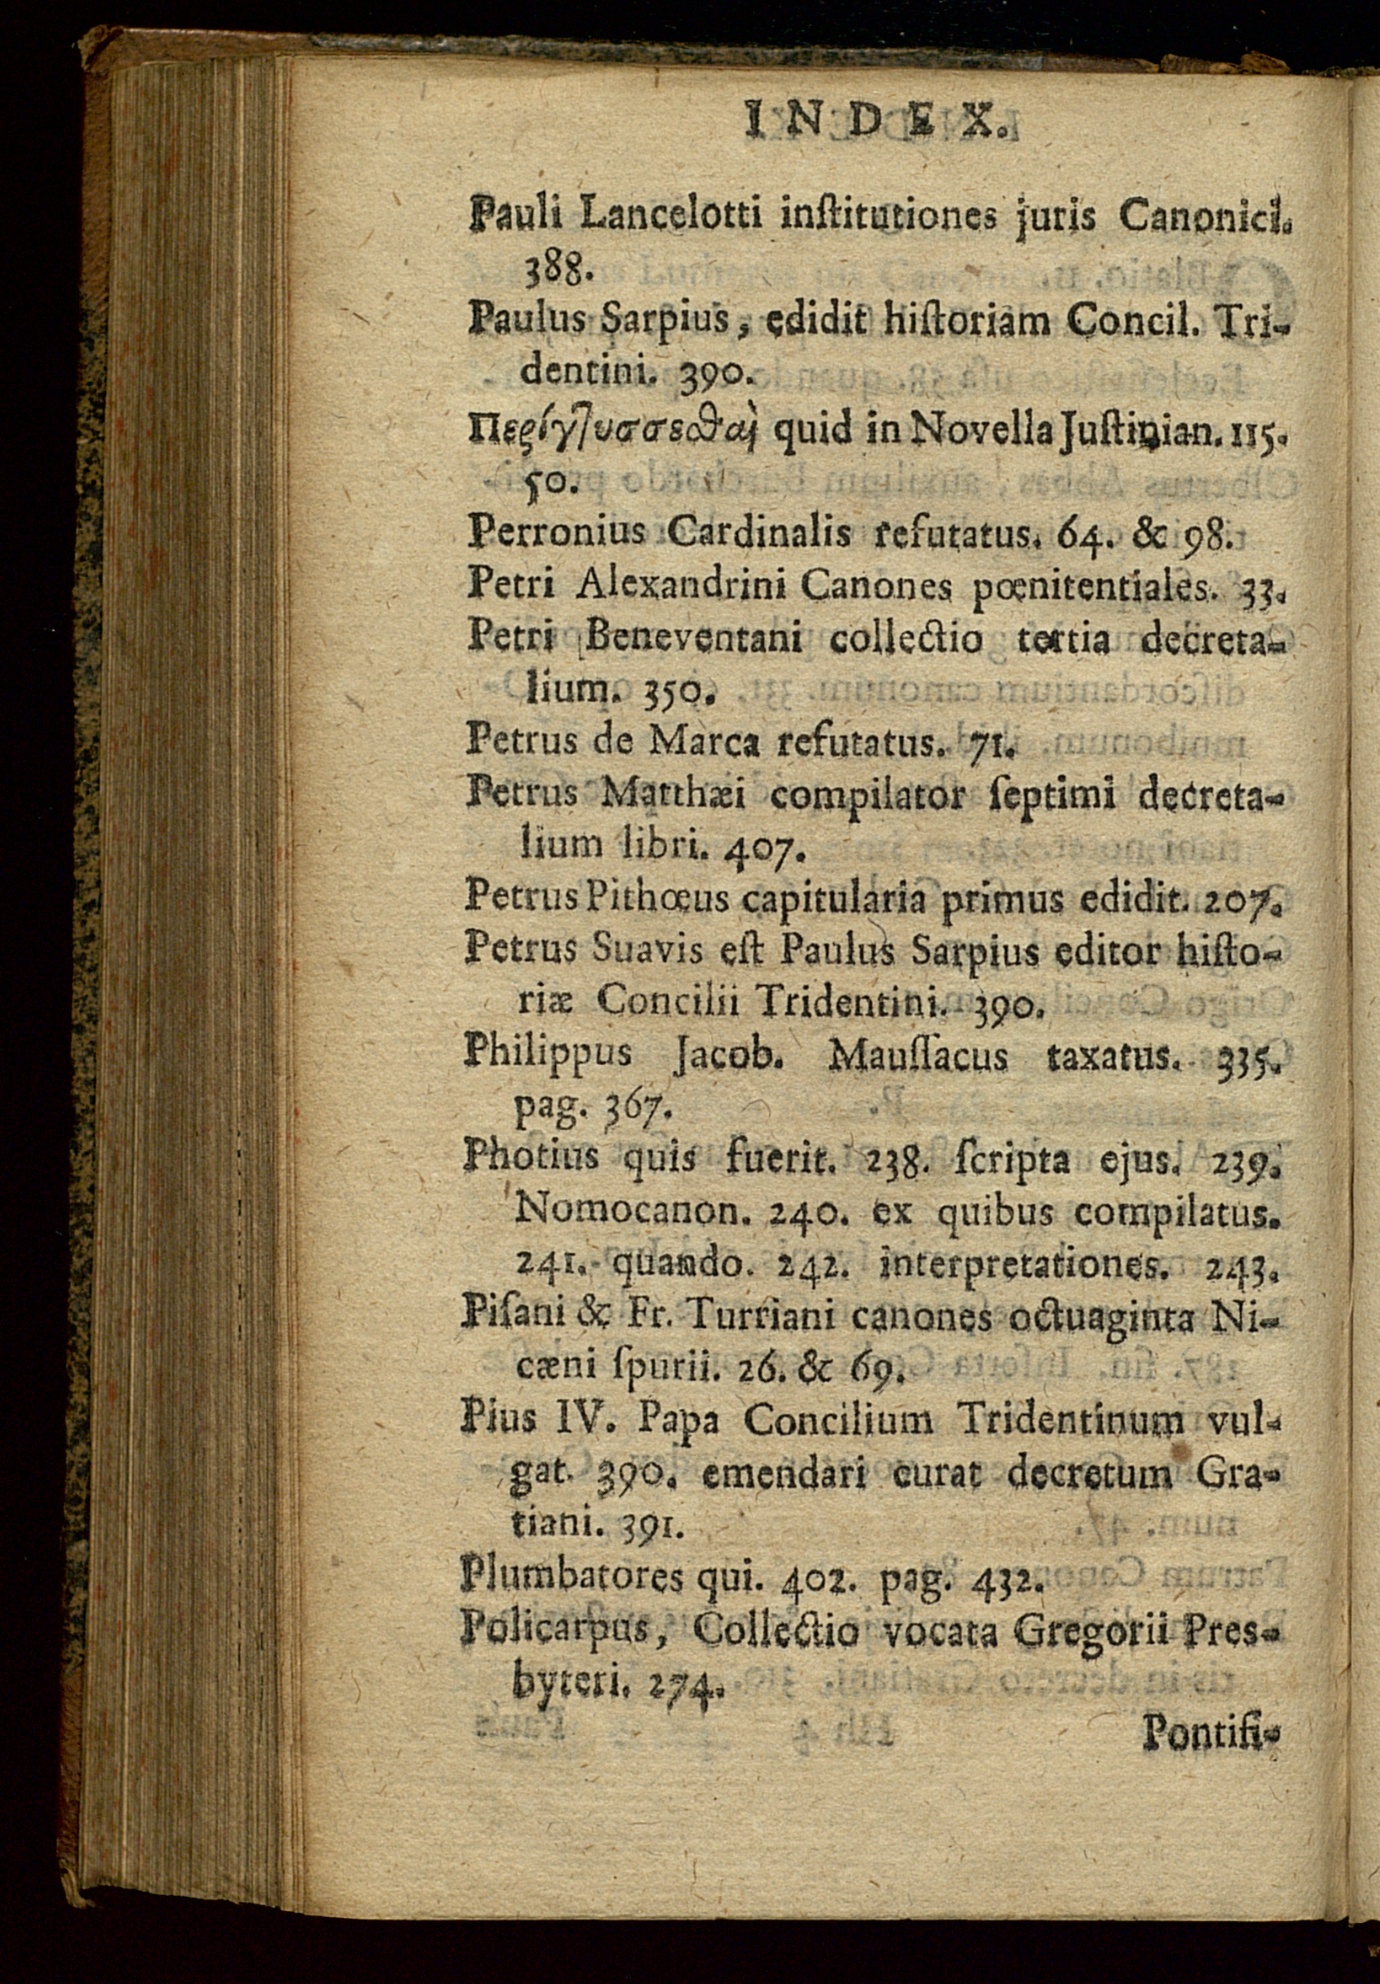 INDEX.
Pauli Lancelotti inſtitutiones juris Canonici.
388.
Paulus Sarpius, edidit hiſtoriam Concil. Tri-
dentini. 390.
quid in Novella Juſtinian. 115.
50.
Perronius Cardinalis refutatus. 64. & 98.
Petri Alexandrini Canones pœnitentiales. 33.
Petri Beneventani collectio tertia decreta-
lium. 350.
Petrus de Marca refutatus. 71.
Petrus Matthæi compilator ſeptimi decreta-
lium libri. 407.
Petrus Pithœus capitularia primus edidit. 207.
Petrus Suavis eſt Paulus Sarpius editor hiſto-
riæ Concilii Tridentini. 390.
Philippus Jacob. Mauſſacus taxatus. 335.
pag. 367.
Photius quis fuerit. 238. ſcripta ejus. 239.
Nomocanon. 240. ex quibus compilatus.
241. quando. 242. interpretationes. 243.
Piſani & Fr. Turriani canones octuaginta Ni-
cæni ſpurii. 26. & 69.
Pius IV. Papa Concilium Tridentinum vul-
gat. 390. emendari curat decretum Gra-
tiani. 391.
Plumbatores qui. 402. pag. 432.
Policarpus, Collectio vocata Gregorii Pres-
byteri. 274.
Pontifi-